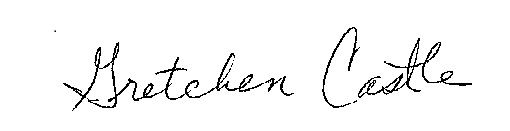 Gretchen Castle